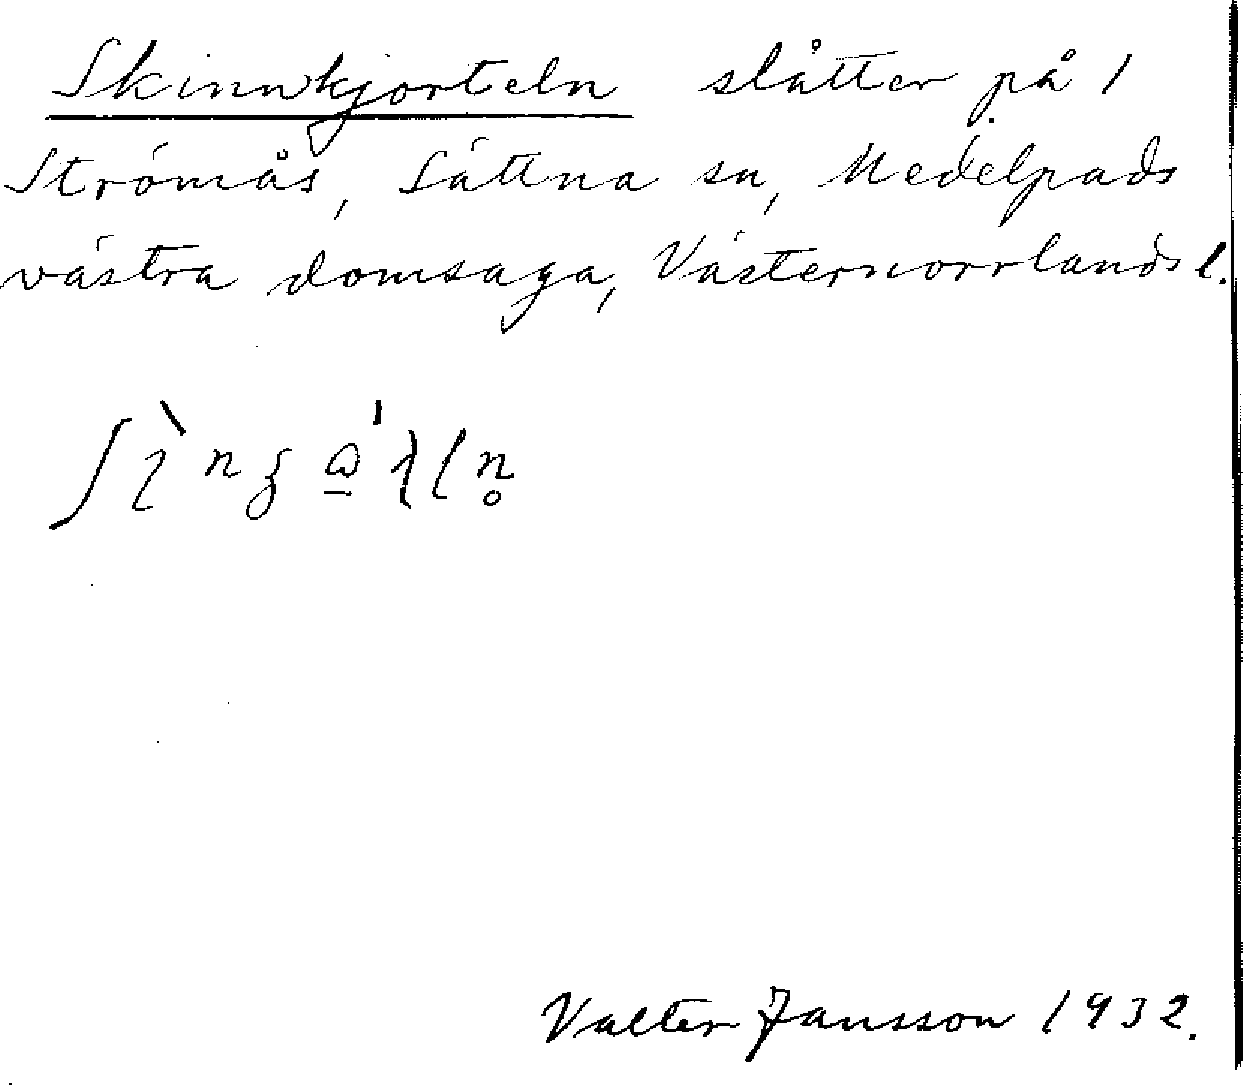 Skinnkjorteln slåtter på 1
Strömås, Sättna sn, Medelpads
västra domsaga, Västernorrlands l.
Valter Jansson 1932.